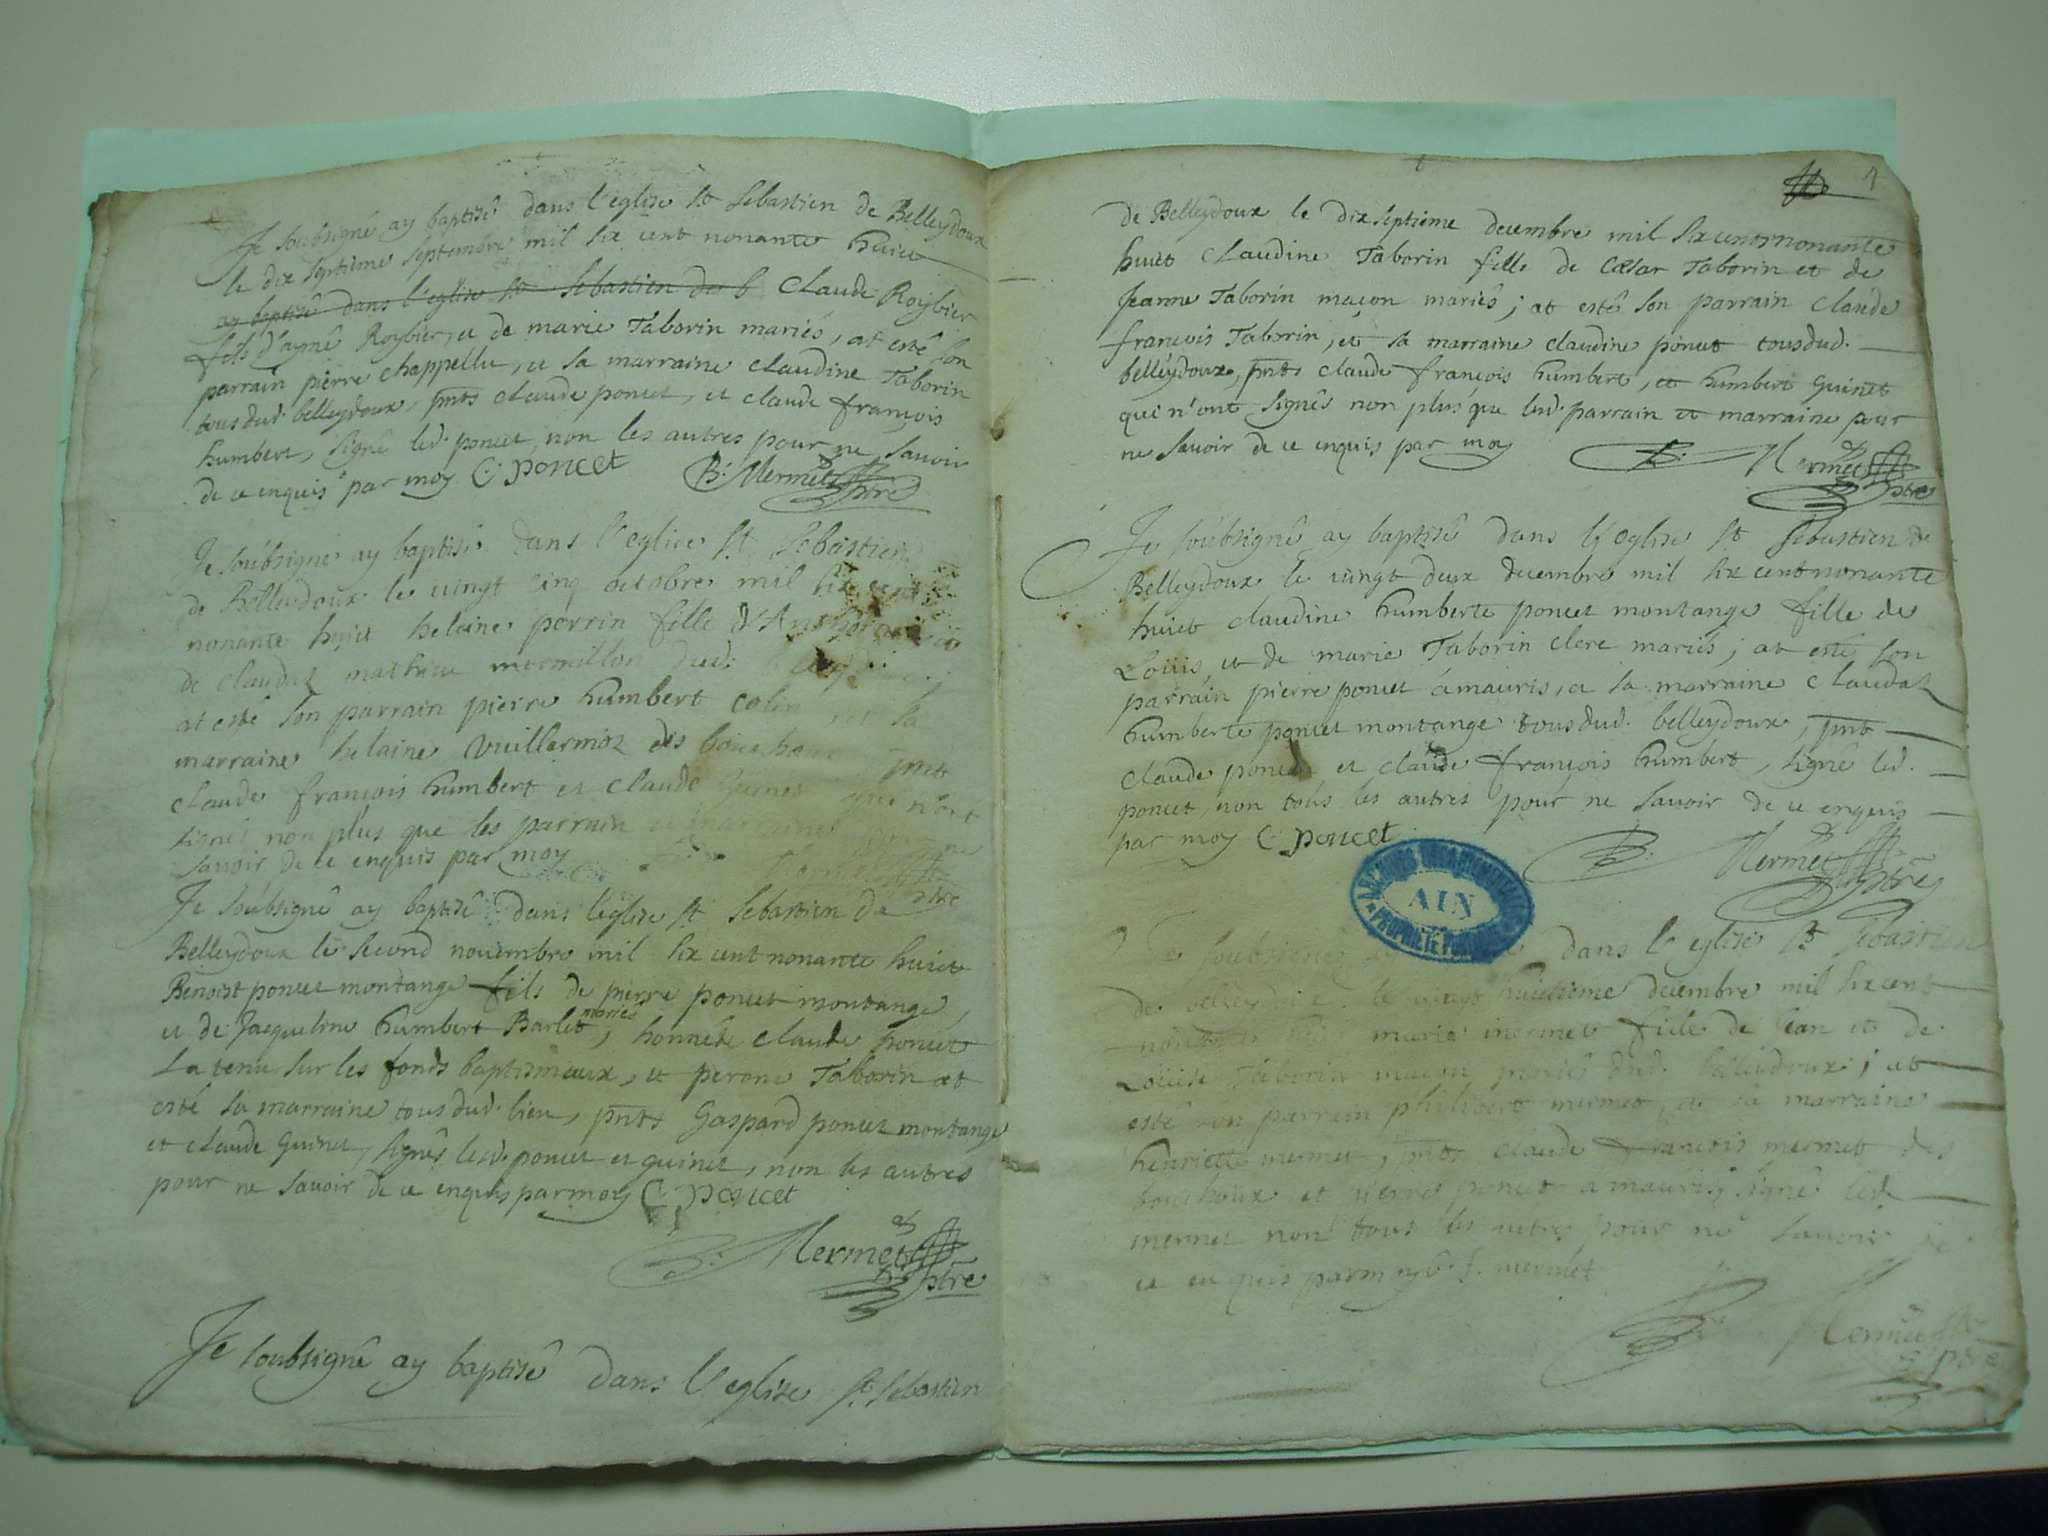 Je soubsigné ay baptisé dans l'eglise St Sebastien de Belleydoux
le dix septieme septembre mil six cent nonante huict
ay baptisé dans l'eglise St Sebastien de b Claude Roybier
fils d'aymé Roybier, et de marie Taborin mariés, at esté son
parrain pierre chappellu, et sa marraine claudine Taborin
tous dud. belleydoux, pnts claude poncet, et claude françois
humbert, signé led. poncet, non les autres pour ne savoir
de ce enquis par moy C. poncet B. Mermet ptre
Je soubsigné ay baptisé dans l'eglise St Sebastien
de Belleydoux le vingt cinq octobre mil six cent
nonante huict helaine perrin fille
de claudaz mathieu mermillon dud.
at esté son parrain pierre humbert colin et sa
marraine helaine Vuillermoz des bouchoux pnts
claude françois humbert et claude Guinet qui n'ont
signés non plus que les parrain et marraine pour ne
savoir de ce enquis par moy
ptre
Je soubsigné ay baptisé dans l'eglise St Sebastien de
Belleydoux le second novembre mil six cent nonante huict
Benoist poncet montange fils de pierre poncet montange,
et de Jacqueline humbert Barlet mariés, honneste claude poncet
La tenu sur les fonds baptismaux, et perone Taborin at
esté sa marraine tous dud. lieu, pnts Gaspard poncet montange
et claude Guinet, signés lesd. poncet et guinet, non les autres
pour ne savoir de ce enquis par moy C. poncet
B. Mermet ptre
Je soubsigné ay baptisé dans l'eglise St Sebastien
de Belleydoux le dix septieme decembre mil six cent nonante
huict Claudine Taborin fille de Cæsar Taborin et de
Jeanne Taborin maçon mariés; at esté son parrain Claude
françois Taborin, et sa marraine claudine poncet tous dud.
belleydoux, pnts claude françois humbert, et humbert Guinet
qui n'ont signés non plus que lesd. parrain et marraine pour
ne savoir de ce enquis par moy B. Mermet
ptre
Je soubsigné ay baptisé dans l'eglise St Sebastien de
Belleydoux le vingt deux decembre mil six cent nonante
huict claudine humberte poncet montange fille de
Loüis, et de marie Taborin clerc mariés; at esté son
parrain pierre poncet amauris, et sa marraine claudaz
humberte poncet montange tous dud. belleydoux, pnts
claude poncet et claude françois humbert, signé led.
poncet, non tous les autres pour ne savoir de ce enquis
par moy C. poncet
B. Mermet ptre
ARCHIVES DEPARTEMENTALES
AIN
PROPRIÉTÉ
Je soubsigné dans l'eglise St Sebastien
de belleydoux le vingt huictieme decembre mil six cent
nonante marie mermet fille de Jean et de
Loüise Taborin maçon mariés dud. belleydoux; at
esté son parrain philibert mermet, et sa marraine
henriette mermet, pnts claude françois mermet des
bouchoux et pierre poncet amauris, signé led.
mermet non tous les autres pour ne savoir de
ce enquis par moy C. f. mermet
B. Mermet
ptre